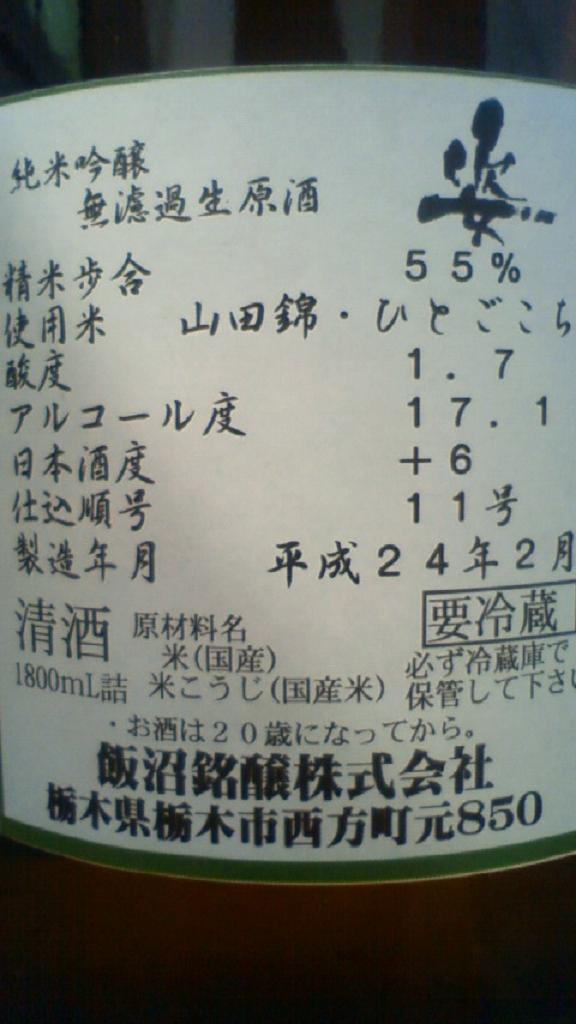 純米吟醸
無濾過生原酒
姿
精米歩合 55%
使用米 山田錦・ひとごこち
酸度 1.7
アルコール度 17.1
日本酒度 +6
仕込順号 11号
製造年月 平成24年2月
清酒
1800mL詰
原材料名
米(国産)
米こうじ(国産米)
要冷蔵
必ず冷蔵庫で
保管して下さい
・お酒は20歳になってから。
飯沼銘醸株式会社
栃木県栃木市西方町元850